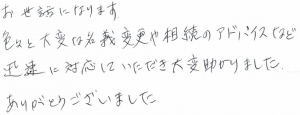 お世話になります
色々と大変な名義変更や相続のアドバイスなど
迅速に対応していただき大変助かりました.
ありがとうございました